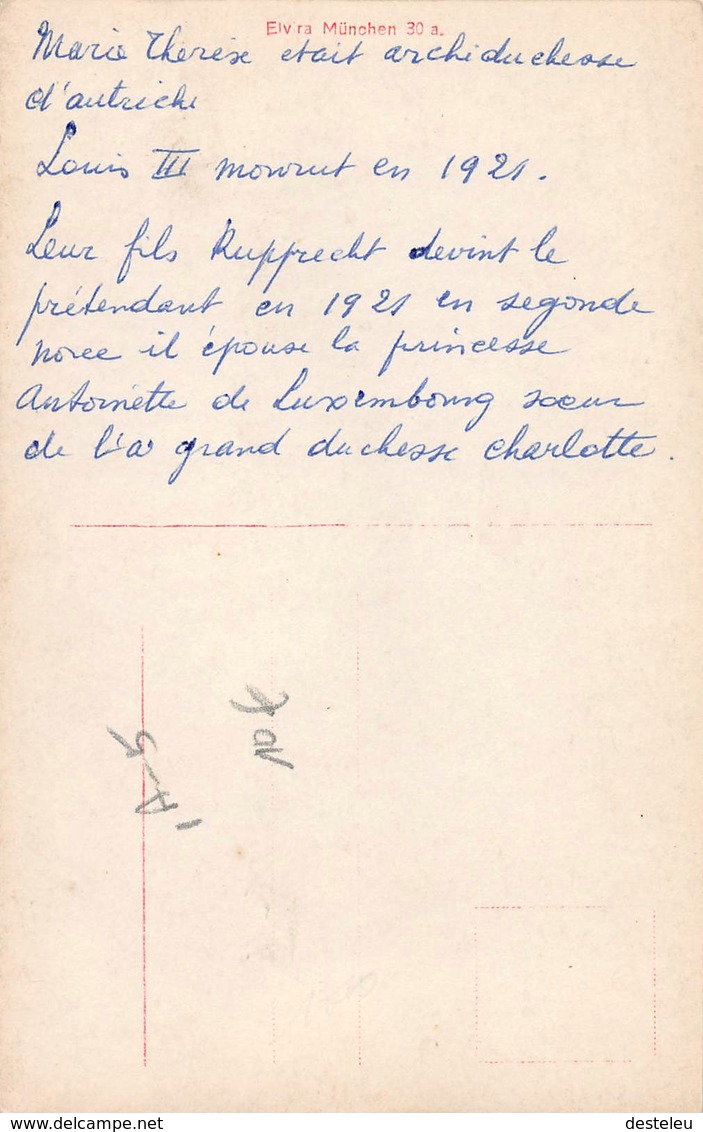 Elvira München 30 a.
Marie Thérèse etait archiduchesse
d'autriche
Louis III mourut en 1921.
Leur fils Rupprecht devint le
prétendant en 1921 en segonde
noree il épouse la princesse
Antoinette de Luxembourg soeur
de l'a grand duchesse charlotte.
desteleu